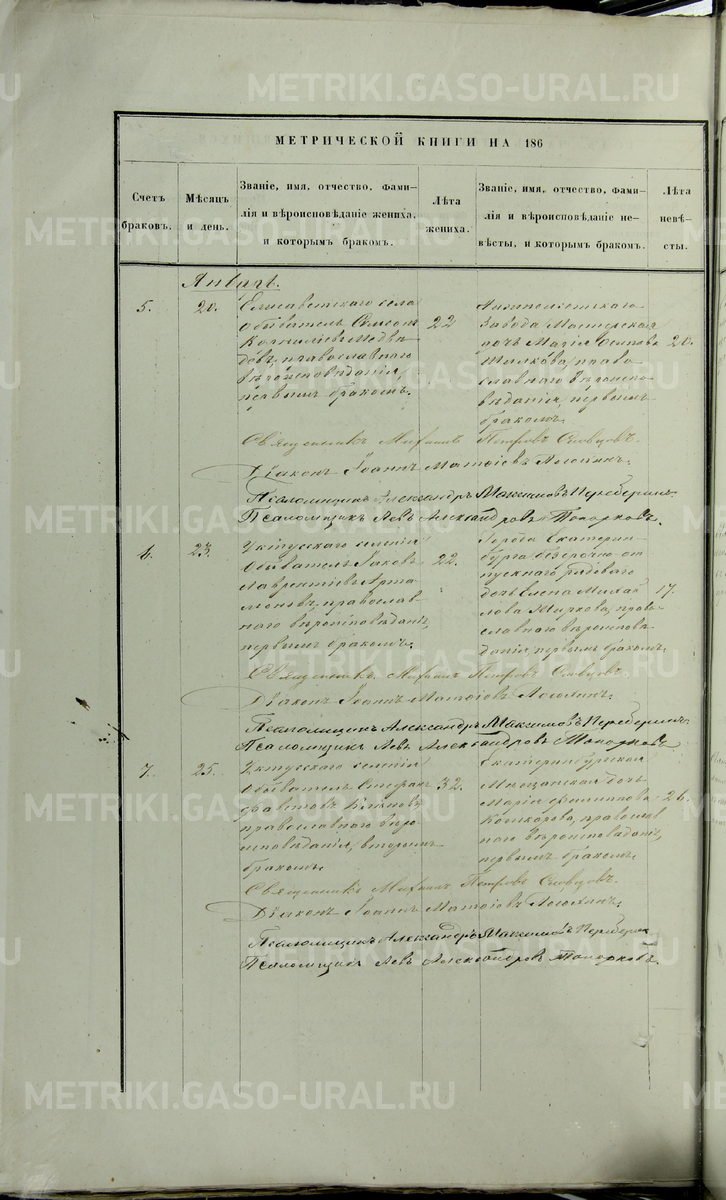 METRIKI.GASO-URAL.RU
МЕТРИЧЕСКОЙ КНИГИ НА 186
Счетъ браковъ.
Мѣсяцъ и день.
Званіе, имя, отчество, фами-
лія и вѣроисповѣданіе жениха,
и которымъ бракомъ.
Лѣта жениха.
Званіе, имя, отчество, фами-
лія и вѣроисповѣданіе не-
вѣсты, и которымъ бракомъ.
Лѣта невѣ-
сты.
Январь.
5.
20.
Елисаветскаго села
обыватель Симеонъ
Корниліевъ Медвѣ-
девъ, православнаго
вѣроисповѣданія,
первымъ бракомъ.
22
завода Мастерская
дочь Марія Осипова
право-
славнаго вѣроиспо-
вѣданія, первымъ
бракомъ.
20.
Священникъ Михаилъ Петровъ
Діаконъ Іоаннъ Матѳіевъ
Псаломщикъ Александръ Максимовъ
Псаломщикъ Левъ Александровъ Топорковъ.
6.
23.
Уктусскаго селенія
обыватель Іаковъ
Лаврентіевъ Арта-
моновъ, православ-
наго вѣроисповѣданія,
первымъ бракомъ.
22.
Города Екатерин-
бурга безсрочно-от-
пускнаго рядоваго
дочь Елена Михай-
лова право-
славнаго вѣроисповѣ-
данія, первымъ бракомъ.
17.
Священникъ Михаилъ Петровъ
Діаконъ Іоаннъ Матѳіевъ
Псаломщикъ Александръ Максимовъ
Псаломщикъ Левъ Александровъ Топорковъ
7.
25.
Уктусскаго селенія
обыватель Стефанъ
православнаго вѣро-
исповѣданія, вторымъ
бракомъ.
32.
Екатеринбургская
Мѣщанская дочь
Марія Филиппова
православ-
наго вѣроисповѣданія,
первымъ бракомъ.
26.
Священникъ Михаилъ Петровъ
Діаконъ Іоаннъ Матѳіевъ
Псаломщикъ Александръ Максимовъ
Псаломщикъ Левъ Александровъ Топорковъ.